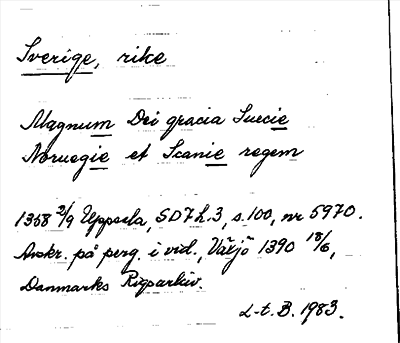 Sverige, rike
Magnum Dei gracia Suecie
Noruegie et Scanie regem
1358 3/9 Uppsala, SD7h.3, s.100, nr 5970.
Avskr. på perg. i vid., Växjö 1390 18/6,
Danmarks Rigsarkiv.
L-t. B. 1983.